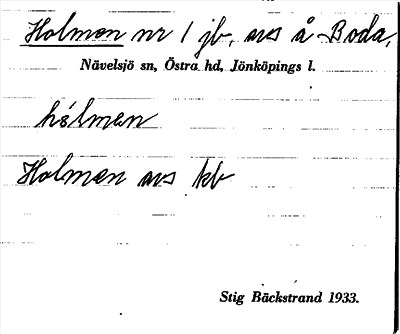 Holmen nr 1 jb, avs å Boda,
Nävelsjö sn, Östra hd, Jönköpings l.
hólmen
Holmen avs kb
Stig Bäckstrand 1933.